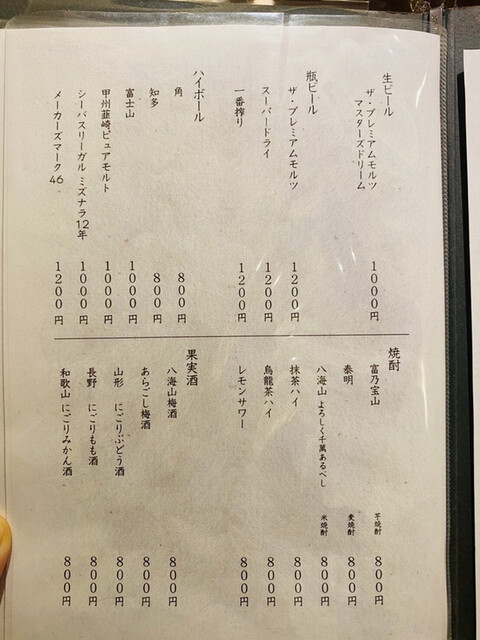 生ビール
ザ・プレミアムモルツ
マスターズドリーム 1000円
瓶ビール
ザ・プレミアムモルツ 1200円
スーパードライ 1200円
一番搾り 1200円
ハイボール
角 800円
知多 800円
富士山 1000円
甲州韮崎ピュアモルト 1000円
シーバスリーガル ミズナラ12年 1000円
メーカーズマーク46 1200円
焼酎
富乃宝山 芋焼酎 800円
泰明 麦焼酎 800円
八海山 よろしく千萬あるべし 米焼酎 800円
抹茶ハイ 800円
烏龍茶ハイ 800円
レモンサワー 800円
果実酒
八海山梅酒 800円
あらごし梅酒 800円
山形 にごりぶどう酒 800円
長野 にごりもも酒 800円
和歌山 にごりみかん酒 800円